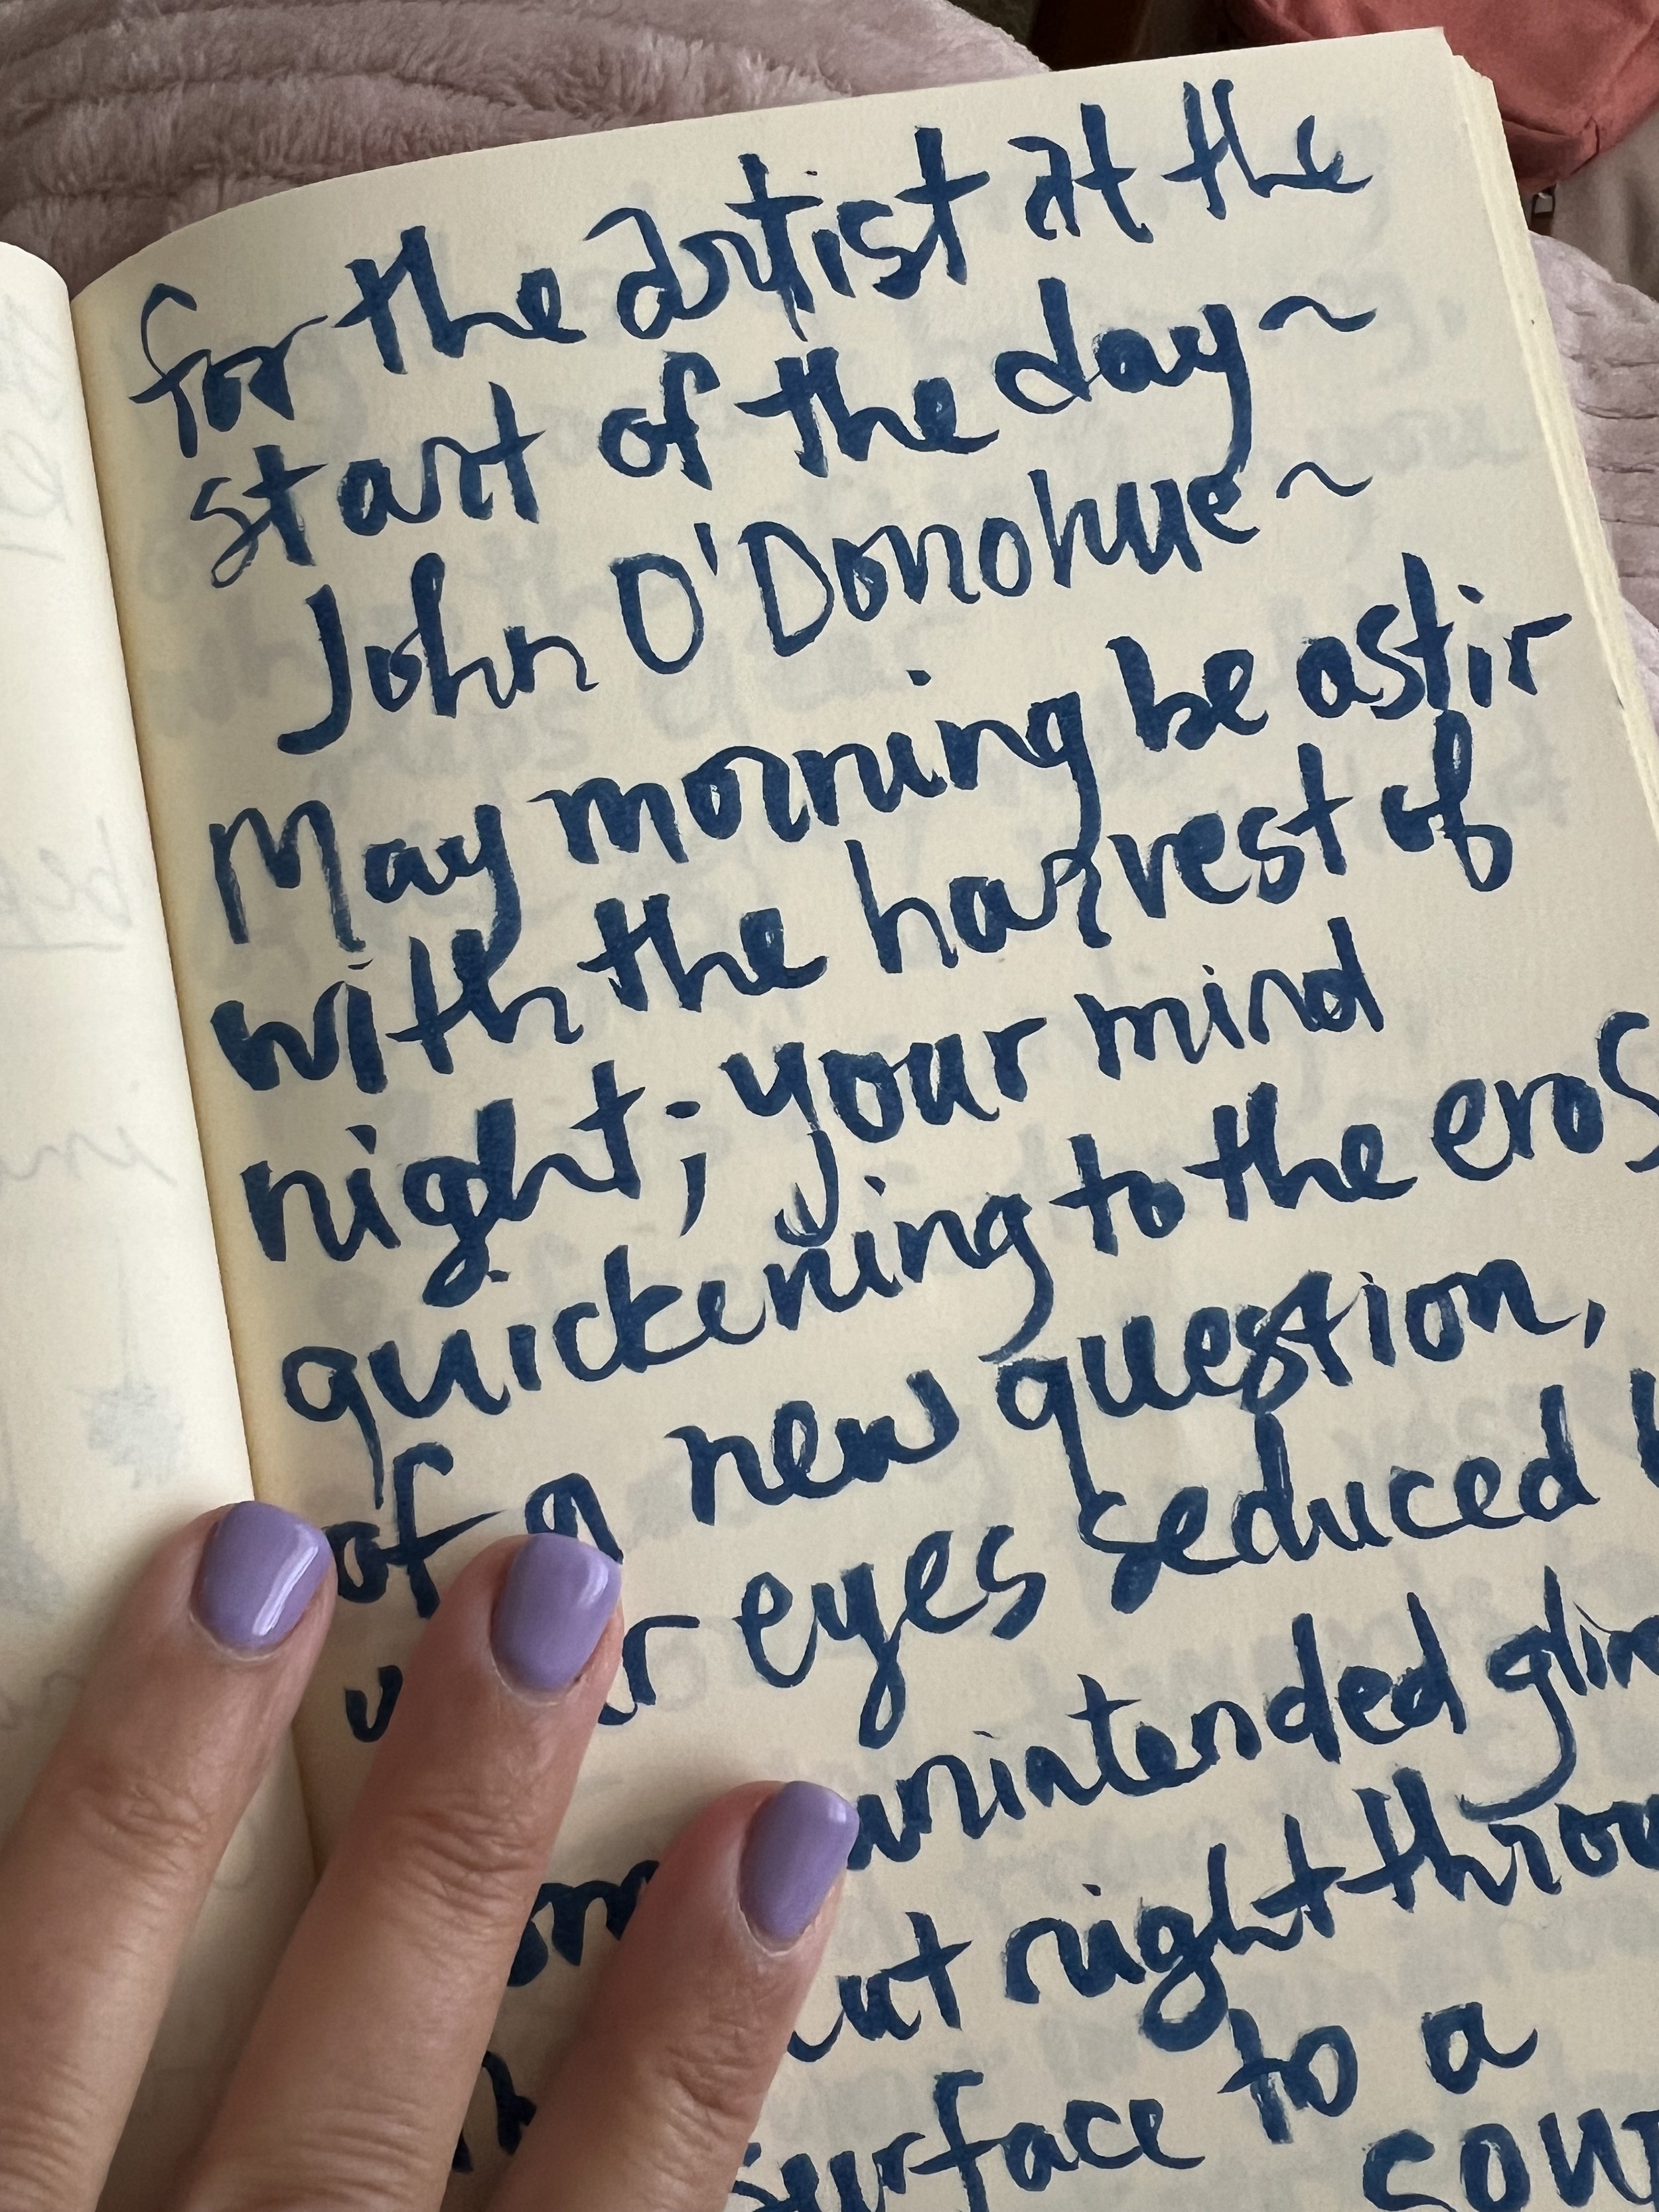 for the artist at the
start of the day ~
John O'Donohue ~
May morning be astir
with the harvest of
night; your mind
quickening to the eros
of a new question,
eyes seduced
unintended
right
surface to a